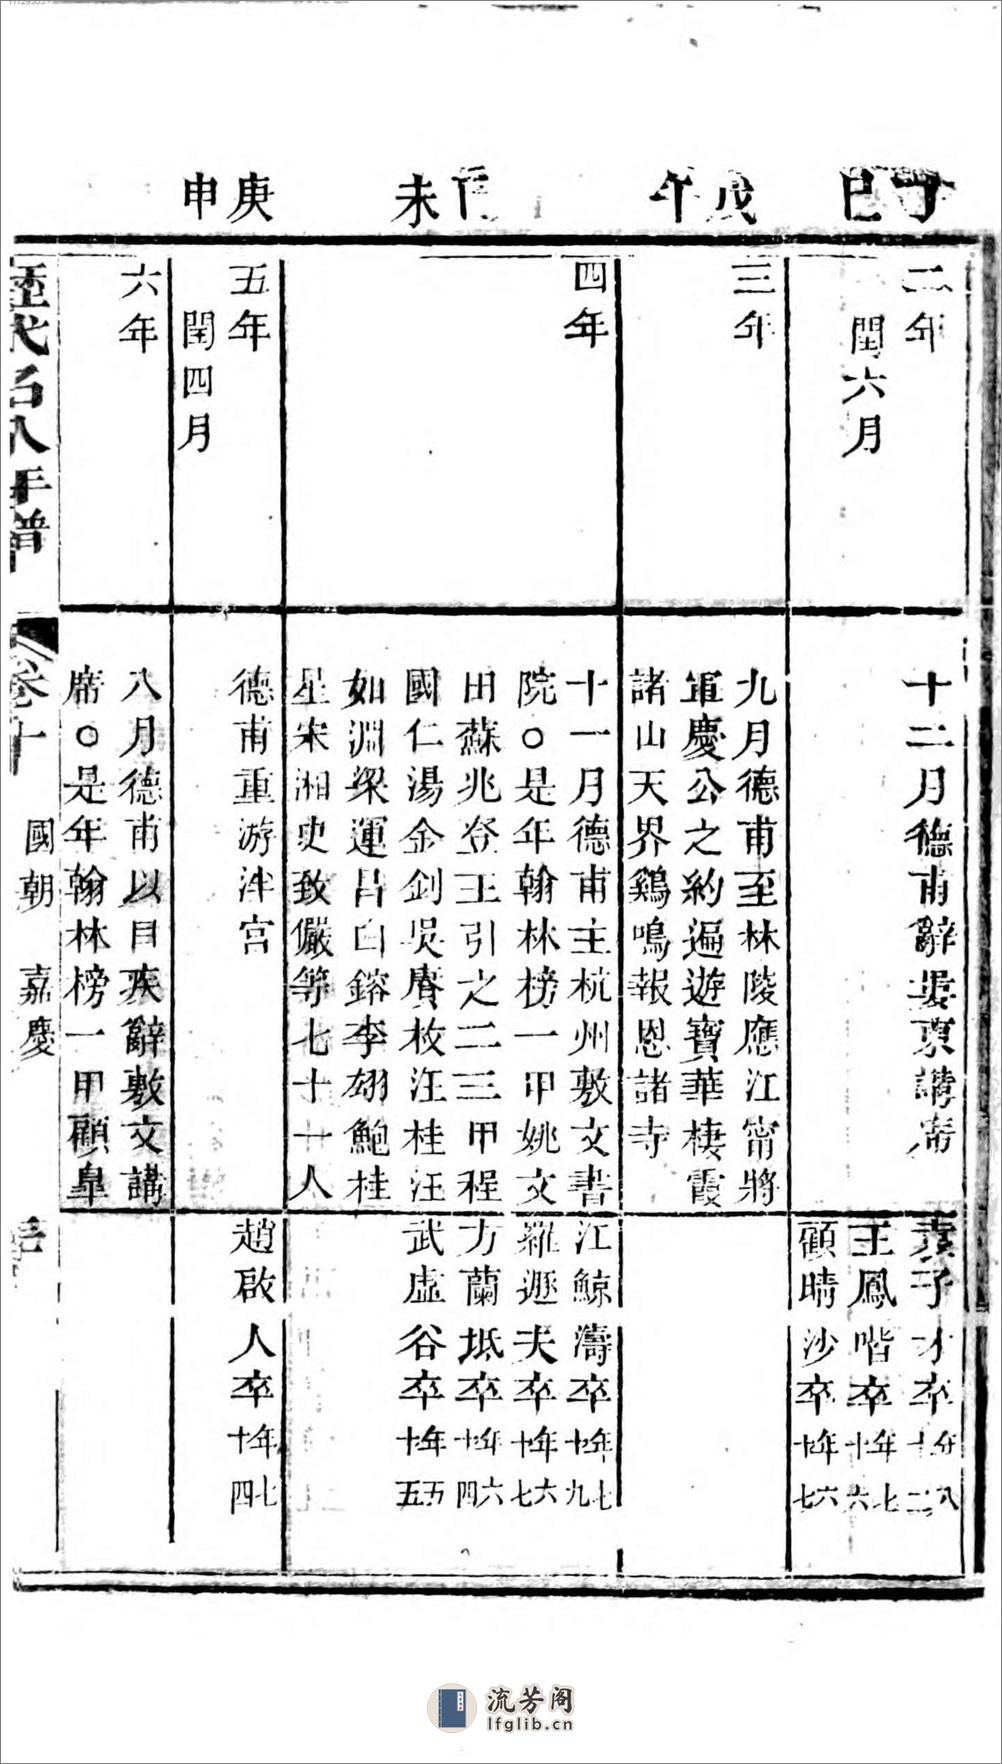 丁巳
二年
閏六月
十二月德甫辭婁東講席
袁子才卒年八十二
王鳳喈卒年七十六
顧晴沙卒年六十七
戊午
三年
九月德甫至林陵應江甯將
軍慶公之約遍遊寶華棲霞
諸山天界鷄鳴報恩諸寺
未
四年
十一月德甫主杭州敷文書
院○是年翰林榜一甲姚文
田蘇兆登王引之二三甲程
國仁湯金釗吳賡枚汪桂汪
如淵梁運昌白鎔李翃鮑桂
星宋湘史致儼等七十一人
江鯨濤卒年七十九
羅遯夫卒年六十七
方蘭坻卒年六十四
武虛谷卒年五十五
庚申
五年
閏四月
德甫重游泮宮
趙啟人卒年七十四
六年
八月德甫以目疾辭敷文講
席○是年翰林榜一甲顧皋
歷代名人年譜
卷十
國朝 嘉慶
流芳阁
lfglib.cn